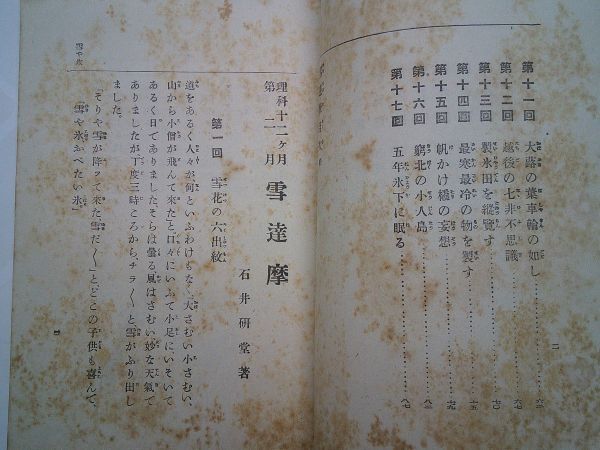 第十一回 大蕗の葉車輪の如し 六一
第十二回 越後の七非不思議 六七
第十三回 製氷田を縦覽す 七〇
第十四回 最寒最冷の物を製す 七五
第十五回 帆かけ橇の妄想 七九
第十六回 窮北の小人島 八二
第十七回 五年氷下に眠る 八七
二
雪や氷
理科十二ヶ月
第二月
雪達摩
石井研堂著
第一回 雪花の六出紋
道をあるく人々が、何といふわけもなく、大さむい小さむい、
山から小僧が飛んて來たと、口々にいふて小足にいそいて
あるく日てありました、そらは曇る風はさむい妙な天氣て
ありましたが、丁度三時ころから、チラ〱と雪がふり出し
ました、
そりや雪が降ッて來た、雪だ〱」と、どこの子供も喜んて、
雪や氷、かべたい氷」